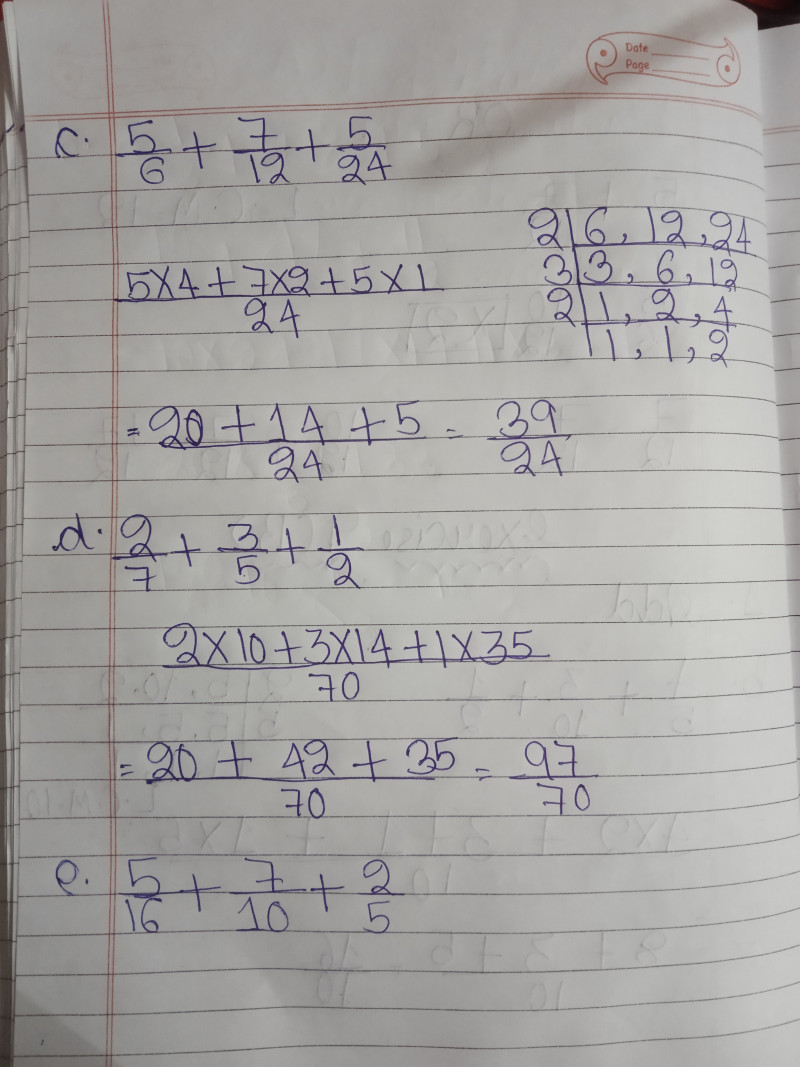 Date
Page
c. 5/6 + 7/12 + 5/24
2 | 6, 12, 24
3 | 3, 6, 12
2 | 1, 2, 4
| 1, 1, 2
5×4 + 7×2 + 5×1 / 24
= 20 + 14 + 5 / 24 = 39/24
d. 2/7 + 3/5 + 1/2
2×10+3×14+1×35 / 70
= 20 + 42 + 35 / 70 = 97/70
e. 5/16 + 7/10 + 2/5